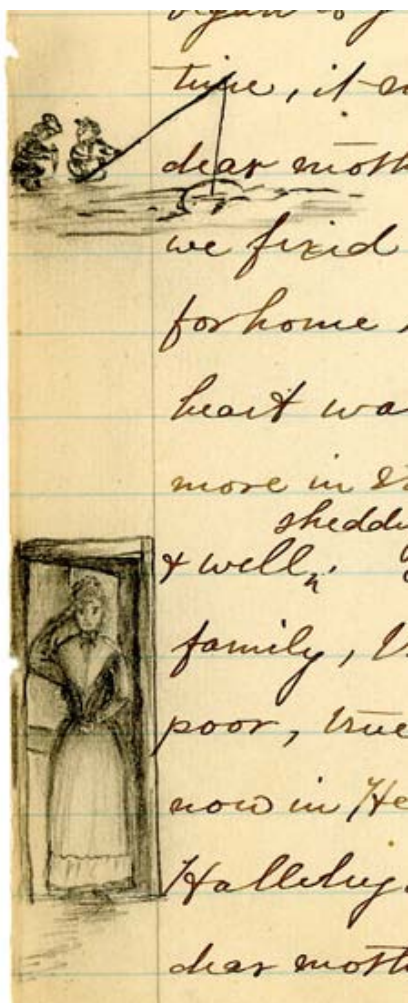 time, it
dear moth
we fixed
for home
heart wa
more in
shedd
& well,
family,
poor, true
now in He
Halleluj
dear moth